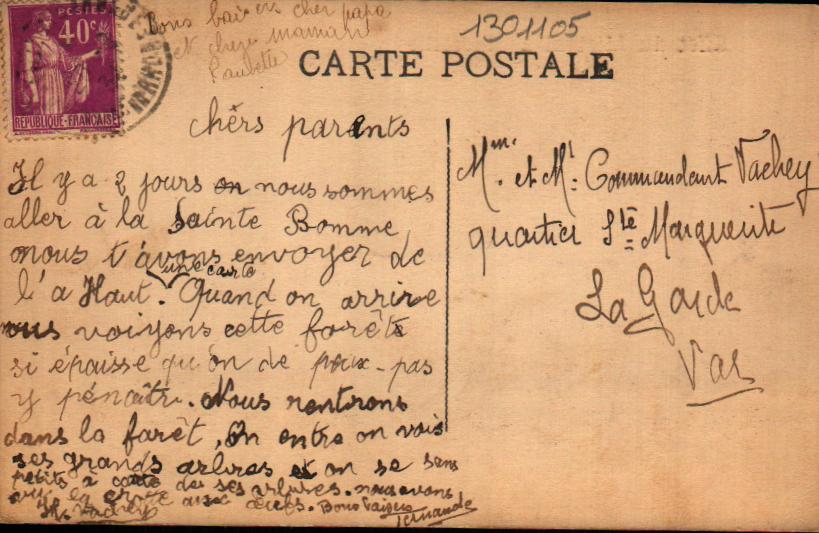 POSTES
40c
REPUBLIQUE-FRANCAISE
Bons baisers cher papa
et chère maman
Paulette
1301105
CARTE POSTALE
chèrs parents
Il y a 2 jours on nous sommes
aller à la Sainte Bomme,
nous t'avons envoyer de
une carte
l'a Haut. Quand on arrive
nous voiyons cette forêts
si épaisse qu'on de peux-pas
y pénaître. Nous rentrons
dans la farêt, On entre on vois
ses grands arbres et on se sens
petits à coté de ses arbres. nous avons
avec Bons Baisers
Fernande
Mme. et Mr. Commandant Vachey
quartier Ste Marguerite
La Garde
Var